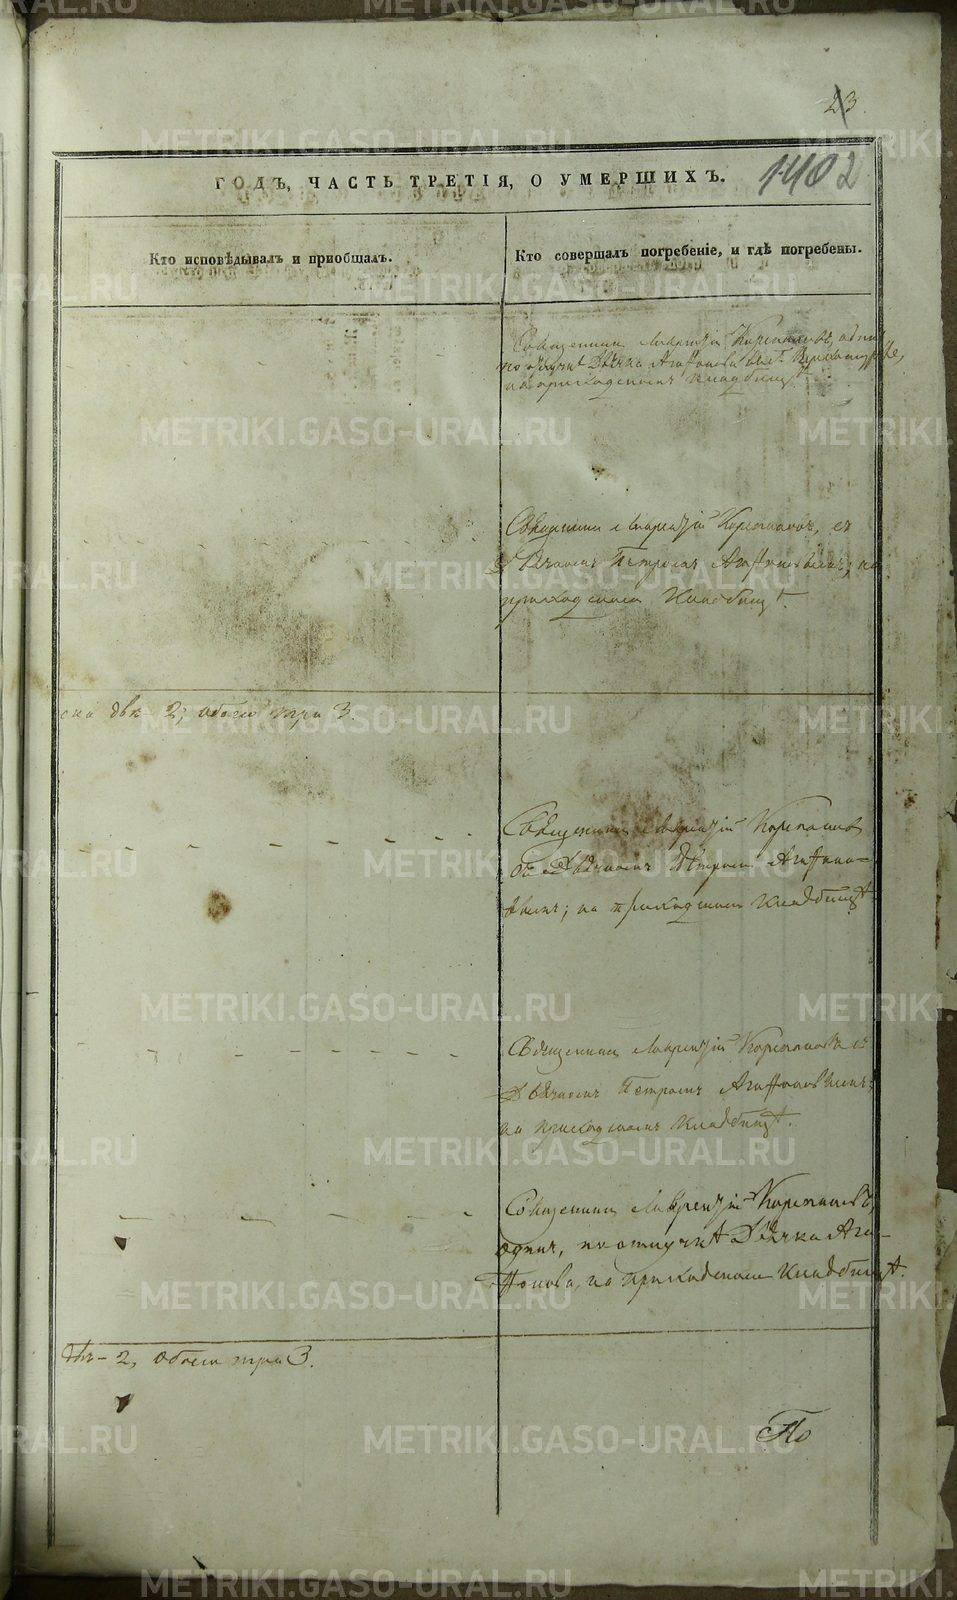 23
1402
ГОДЪ, ЧАСТЬ ТРЕТІЯ, О УМЕРШИХЪ.
Кто исповѣдывалъ и пріобщалъ.
Кто совершалъ погребеніе, и гдѣ погребены.
Священникъ Лаврентій Корепановъ, одинъ
по отлучкѣ Дьячка Агафонова
на приходскомъ кладбищѣ.
Священникъ Лаврентій Корепановъ, съ
Дьячкомъ Петромъ Агафоновымъ, на
приходскомъ Кладбищѣ.
2; обоего три 3.
Священникъ Лаврентій Корепановъ
съ Дьячкомъ Петромъ Агафоно-
вымъ; на приходскомъ кладбищѣ.
Священникъ Лаврентій Корепановъ съ
Дьячкомъ Петромъ Агафоновымъ;
на приходскомъ Кладбищѣ.
Священникъ Лаврентій Корепановъ,
одинъ, по отлучкѣ Дьячка Ага-
фонова, на приходскомъ кладбищѣ.
2, обоего три 3.
По
METRIKI.GASO-URAL.RU